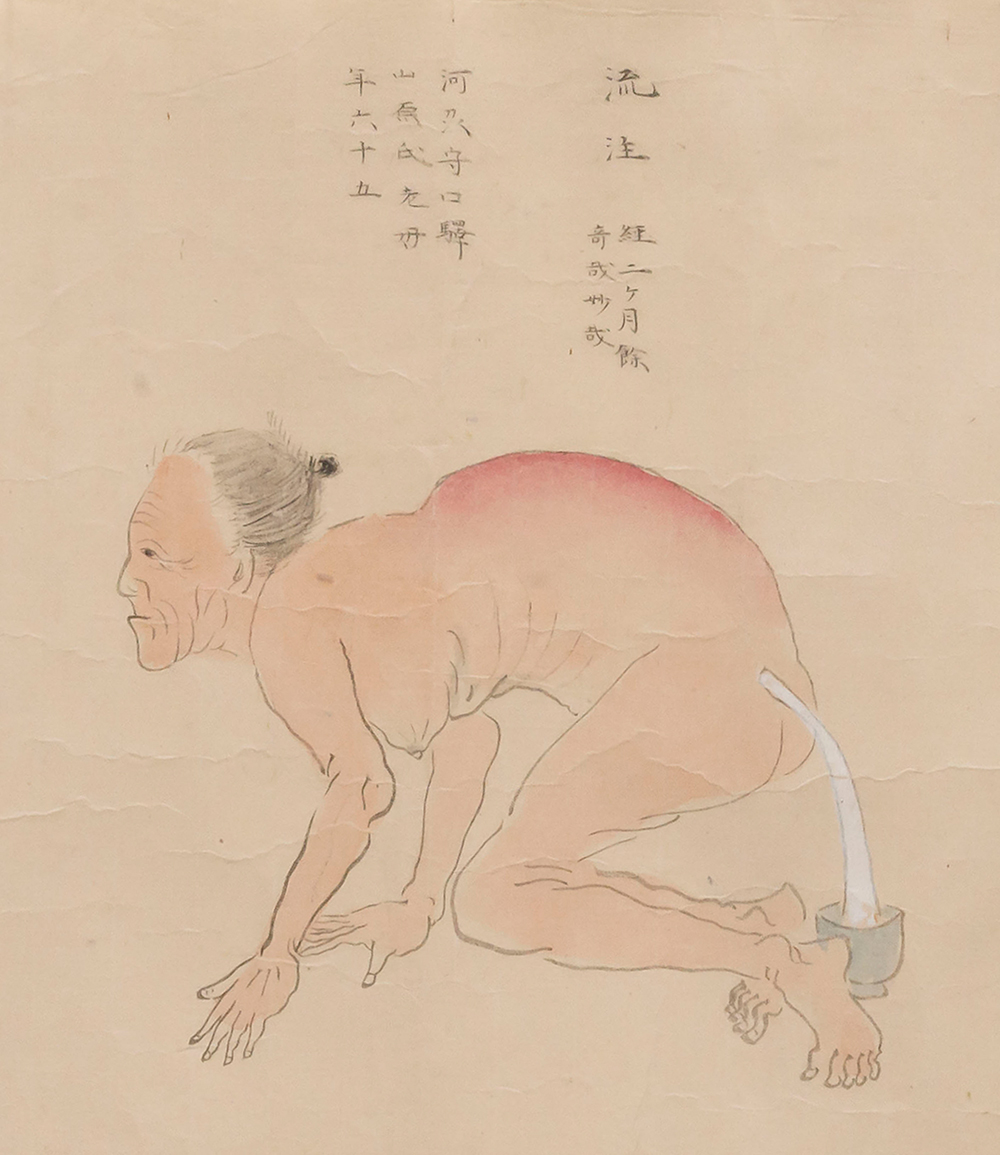 流注
経二ヶ月餘
奇哉妙哉
河刕守口驛
山原氏老母
年六十五